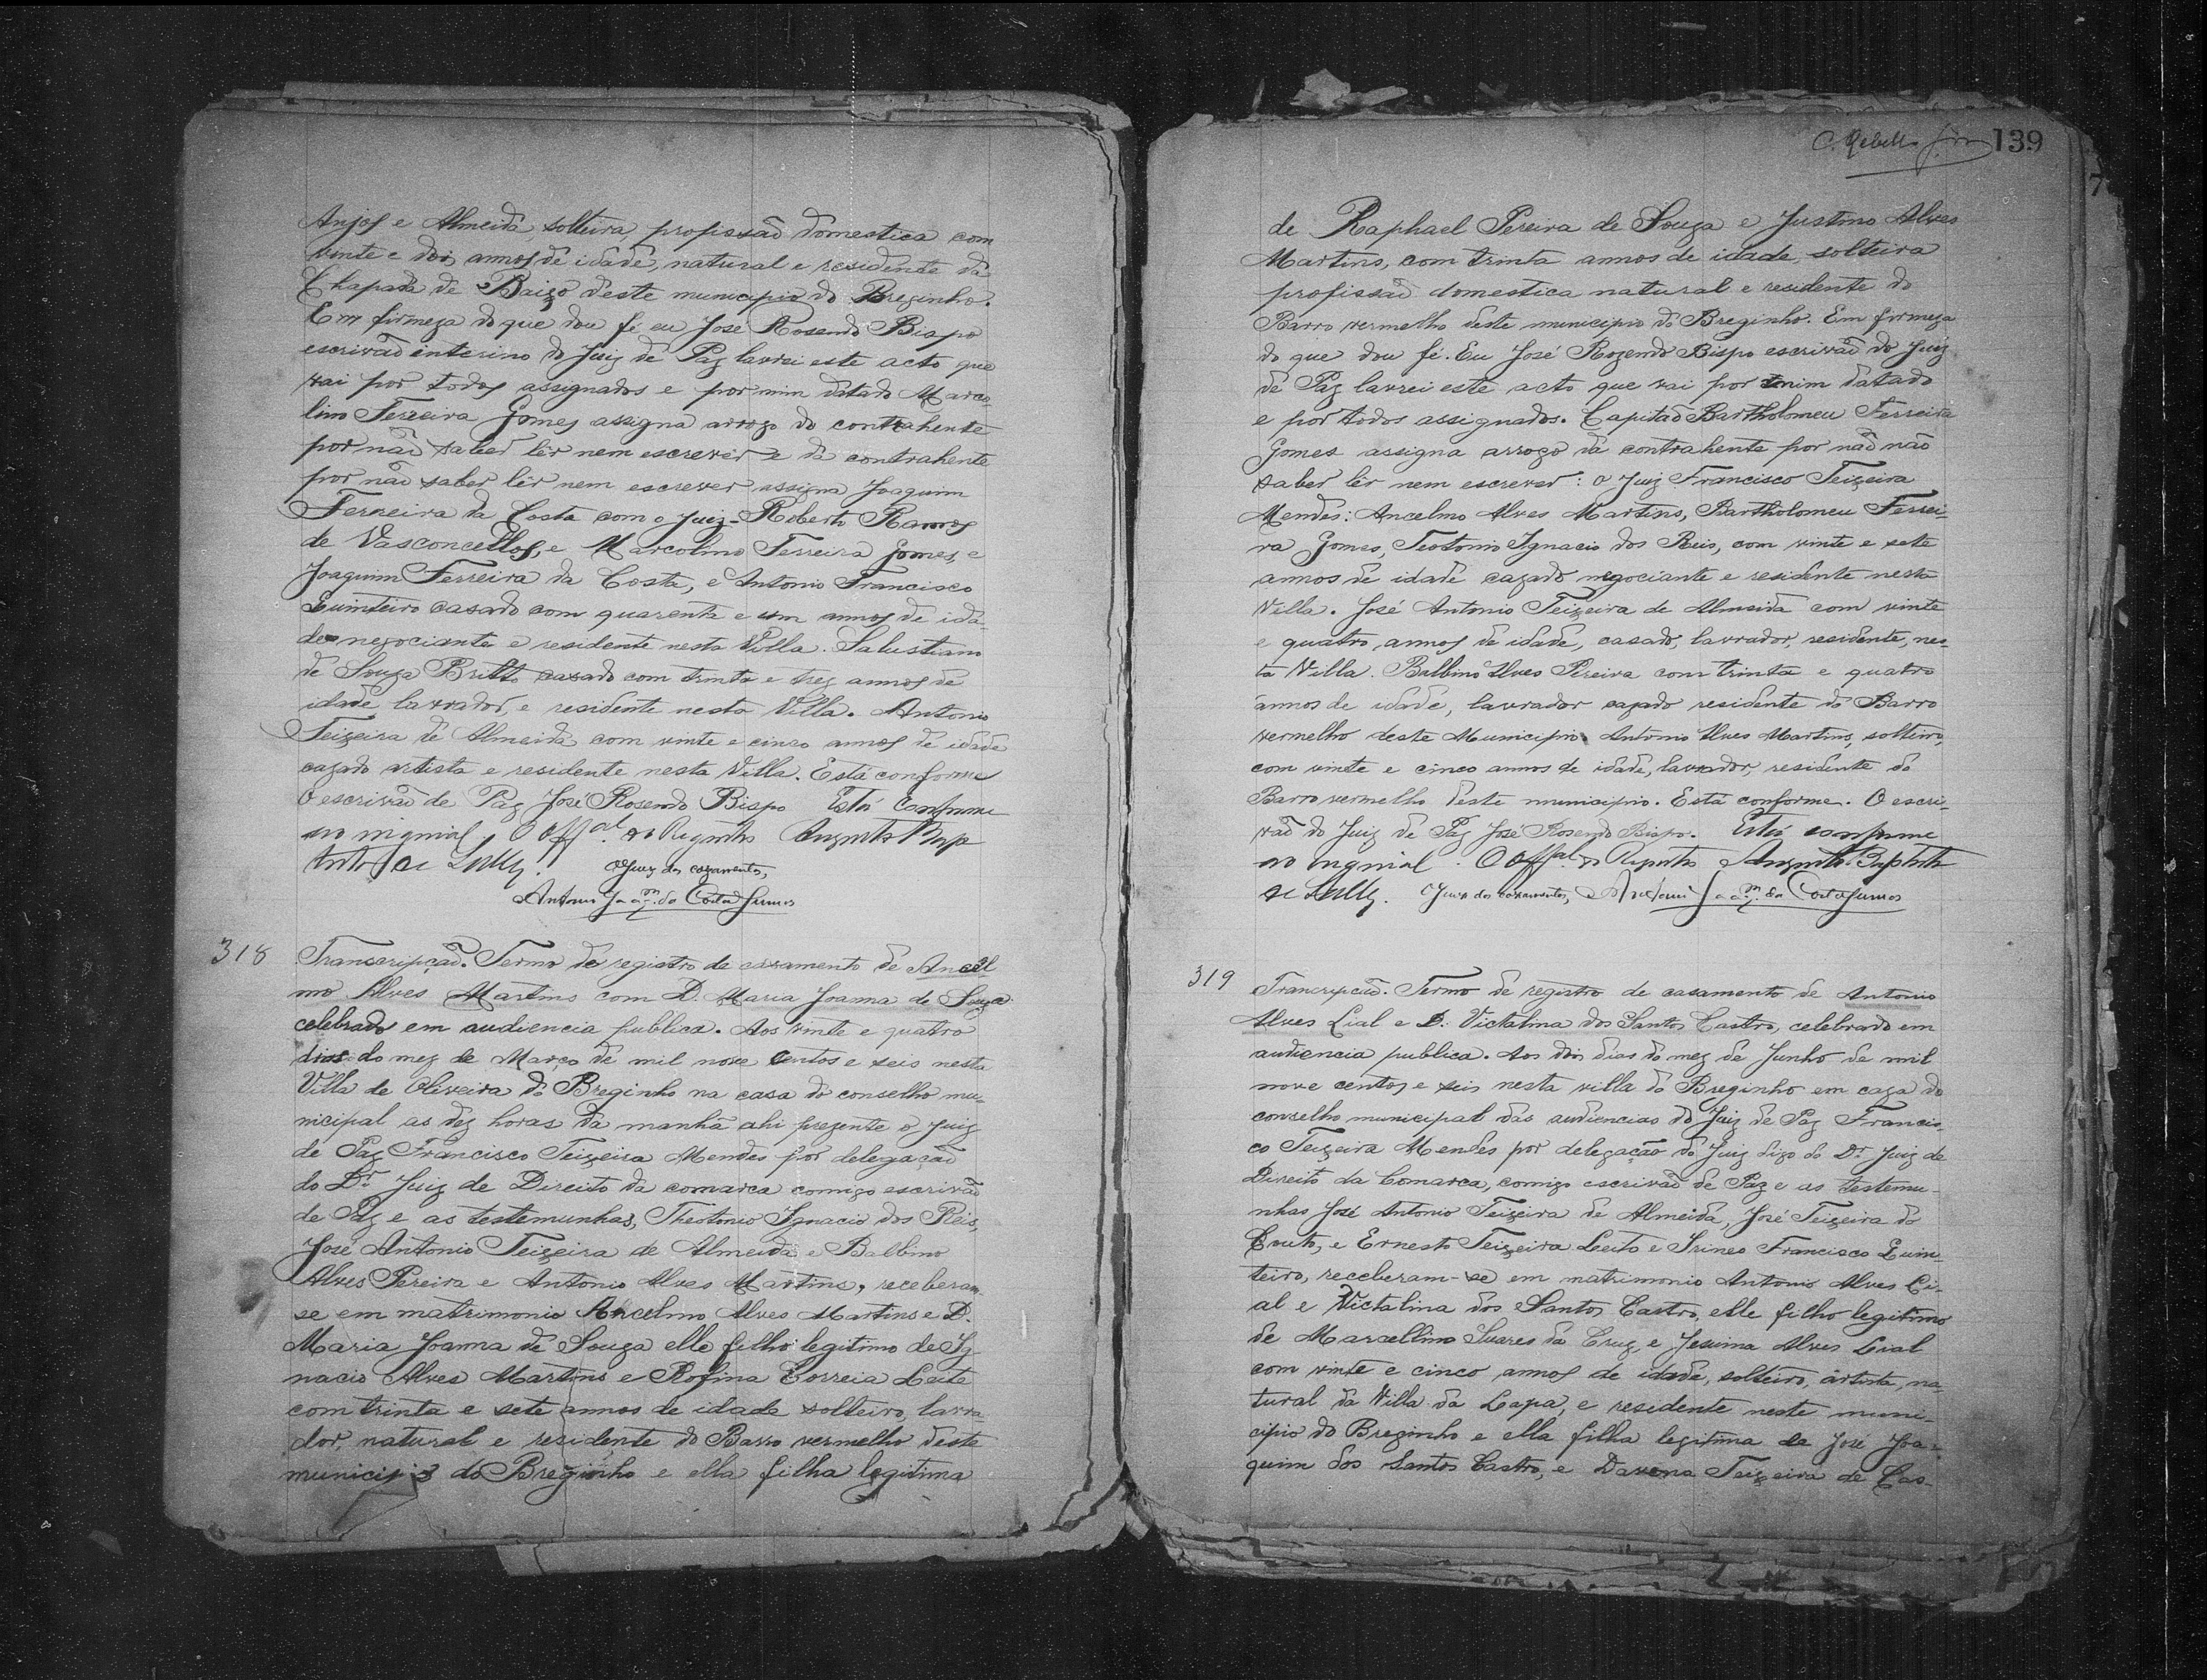 Anjos e Almeida, solteira, profissão domestica com
vinte e dois annos de idade, natural e residente da
Chapada de Baixo deste municipio do Breginho.
Em firmeza do que dou fé eu José Rosendo Bispo
escrivão interino do Juiz de Paz lavrei este acto que
vai por todos assignados e por mim datado Marco-
lino Ferreira Gomes assigna arrogo do contrahente
por não saber lêr nem escrever e da contrahente
por não saber lêr nem escrever assigna Joaquim
Ferreira da Costa com o Juiz - Roberto Ramos
de Vasconcellos, e Marcolino Ferreira Gomes, e
Joaquim Ferreira da Costa, e Antonio Francisco
Quinteiro casado com quarenta e um annos de ida-
de negociante e residente nesta Villa. Salustiano
de Souza Britto casado com trinta e trez annos de
idade lavrador, e residente nesta Villa. Antonio
Teixeira de Almeida com vinte e cinco annos de idade
cazado artista e residente nesta Villa. Está conforme
O escrivão de Paz José Rosendo Bispo Está conforme
ao original. O Offal. do Registro Augusto Bap
tista de
O Juiz dos cazamentos,
Antonio Joaqm. da Costa Junior
318
Transcripção. Termo de registro de cazamento de Ancel-
mo Alves Martins com D. Maria Joanna de Souza
celebrado em audiencia publica. Aos vinte e quatro
dias do mez de Março de mil nove centos e seis nesta
Villa de Oliveira do Breginho na casa do conselho mu-
nicipal as dez horas da manhã ahi prezente o Juiz
de Paz Francisco Teixeira Mendes por delegação
do Dr. Juiz de Direito da comarca comigo escrivão
de Paz e as testemunhas, Theotonio Ignacio dos Reis,
José Antonio Teixeira de Almeida e Balbino
Alves Pereira e Antonio Alves Martins, receberam-
se em matrimonio Ancelmo Alves Martins e D.
Maria Joanna de Souza elle filho legitimo de Ig-
nacio Alves Martins e Rofina Correia Leite
com trinta e sete annos de idade solteiro, lavra-
dor, natural e residente do Barro vermelho deste
municipio do Breginho e ella filha legitima
C. Rebello 139
de Raphael Pereira de Souza e Justina Alves
Martins, com trinta annos de idade, solteira
profissão domestica natural e residente do
Barro vermelho deste municipio do Breginho. Em firmeza
do que dou fé. Eu José Rozendo Bispo escrivão do Juiz
de Paz lavrei este acto que vai por mim datado
e por todos assignados. Capitão Bartholomeu Ferreira
Gomes assigna arrogo da contrahente por não não
saber lêr nem escrever: o Juiz Francisco Teixeira
Mendes: Ancelmo Alves Martins, Bartholomeu Ferrei-
ra Gomes, Teotonio Ignacio dos Reis, com vinte e sete
annos de idade cazado negociante e residente nesta
Villa. José Antonio Teixeira de Almeida com vinte
e quatro annos de idade, casado, lavrador, residente, nes-
ta Villa. Balbino Alves Pereira com trinta e quatro
annos de idade, lavrador cazado residente do Barro
vermelho deste Municipio. Antonio Alves Martins, solteiro,
com vinte e cinco annos de idade, lavrador, residente do
Barro vermelho deste municipio. Está conforme. O escri-
vão do Juiz de Paz José Rosendo Bispo. Está conforme
ao original. O Offal do Registro Augusto Baptista
de O Juiz dos cazamentos, Antonio Joaqm. da Costa Junior
319
Trancripção. Termo de registro de casamento de Antonio
Alves Lial e D. Victalina dos Santos Castro, celebrado em
audiencia publica. Aos dois dias do mez de Junho de mil
nove centos e seis nesta villa do Breginho em caza do
conselho municipal das audiencias do Juiz de Paz Francis-
co Teixeira Mendes por delegação do Juiz digo do Dr. Juiz de
Direito da Comarca, comigo escrivão de Paz e as testemu-
nhas José Antonio Teixeira de Almeida, José Teixeira do
Couto, e Ernesto Teixeira Leito e Irineo Francisco Quin-
teiro, receberam-se em matrimonio Antonio Alves Li-
al e Victalina dos Santos Castro, elle filho legitimo
de Marcellino Suares da Cruz, e Jesuina Alves Leial
com vinte e cinco annos de idade, solteiro, artista, na-
tural da Villa da Lapa, e residente neste muni-
cipio do Breginho e ella filha legitima de José Joa-
quim dos Santos Castro, e Teixeira de Cas-